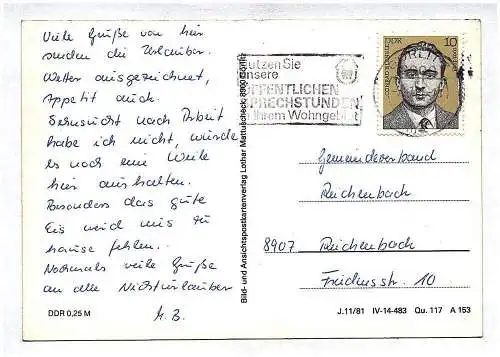 Viele Grüße von hier
senden die Urlauber.
Wetter ausgezeichnet,
Appetit auch.
Sehnsucht nach Arbeit
habe ich nicht, würde
es noch eine Weile
hier aushalten.
Besonders das gute
Eis wird mir zu
hause fehlen.
Nochmals viele Grüße
an alle Nichturlauber
M. B.
DDR 0,25 M
Bild- und Ansichtspostkartenverlag Lothar Mattuscheck, 8900 Görlitz
utzen Sie
unsere
ÖFFENTLICHEN
SPRECHSTUNDEN
Ihrem Wohngebiet
DDR 10
Gemeindeverband
Reichenbach
8907 Reichenbach
Friedensstr. 10
J.11/81 IV-14-483 Qu. 117 A 153